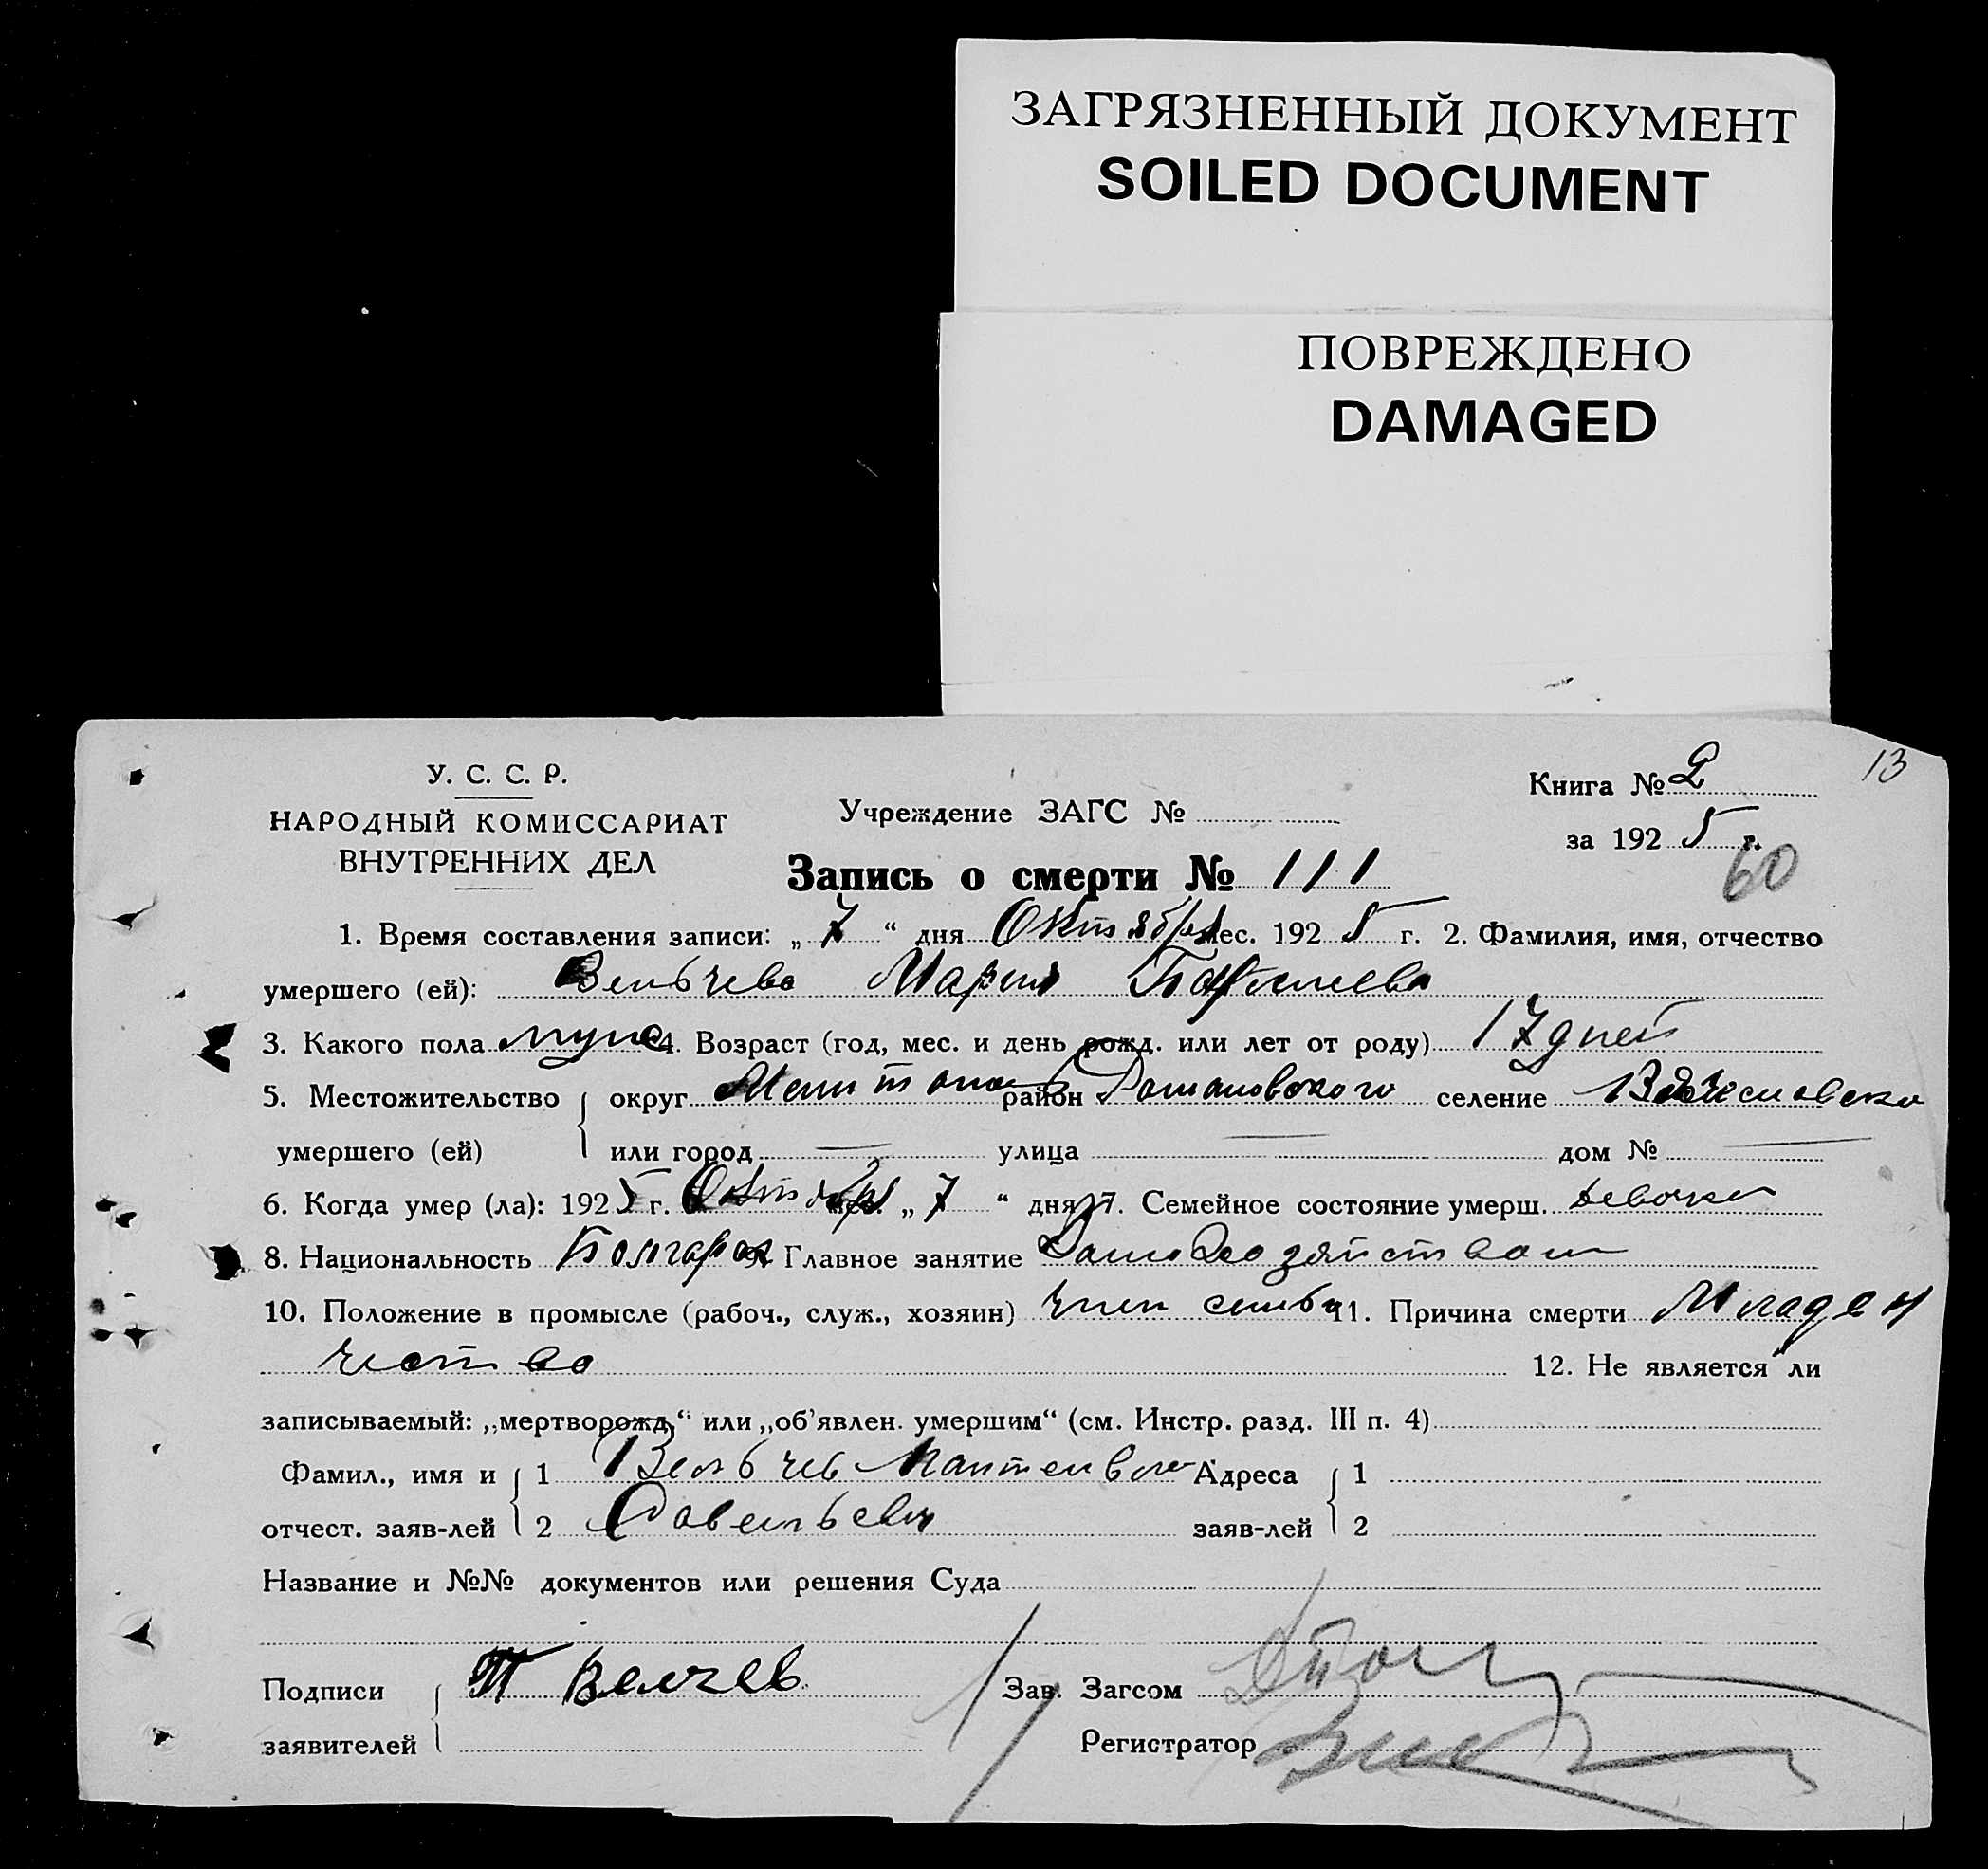 ЗАГРЯЗНЕННЫЙ ДОКУМЕНТ
SOILED DOCUMENT
ПОВРЕЖДЕНО
DAMAGED
13
У. С. С. Р.
НАРОДНЫЙ КОМИССАРИАТ
ВНУТРЕННИХ ДЕЛ
Учреждение ЗАГС №
Книга № 2
за 1925 г.
60
Запись о смерти № 111
1. Время составления записи: „7“ дня Октября мес. 1925 г. 2. Фамилия, имя, отчество
умершего (ей): Вельчева Мария
3. Какого пола 4. Возраст (год, мес. и день рожд. или лет от роду) 17 дней
5. Местожительство округ район Романовского селение
умершего (ей) или город — улица — дом № —
6. Когда умер (ла): 1925 г. Октября мес. „7“ дня 7. Семейное состояние умерш. девочка
8. Национальность Болгарка 9. Главное занятие
10. Положение в промысле (рабоч., служ., хозяин) член семьи 11. Причина смерти Младен
чество 12. Не является ли
записываемый: „мертворожд.“ или „об'явлен. умершим“ (см. Инстр. разд. III п. 4)
Фамил., имя и 1 Вельчев Адреса 1
отчест. заяв-лей 2 Савельевич заяв-лей 2
Название и №№ документов или решения Суда
Подписи П Велчев Зав. Загсом
заявителей Регистратор